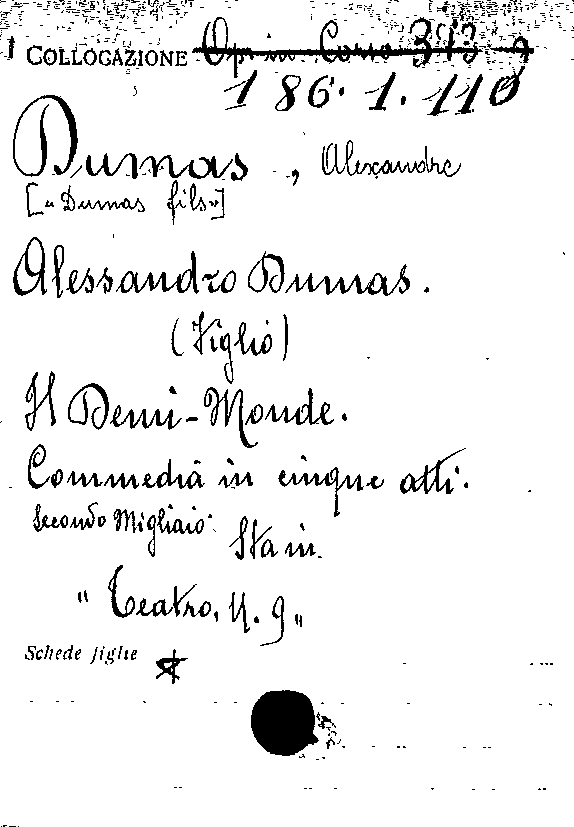 COLLOCAZIONE Op. in Corso 393
186.1.110
Dumas, Alexandre
[«Dumas fils»]
Alessandro Dumas.
(Figlio)
Il Demi-Monde.
Commedia in cinque atti.
Secondo Migliaio. Sta in
"Teatro, N. 9"
Schede figlie